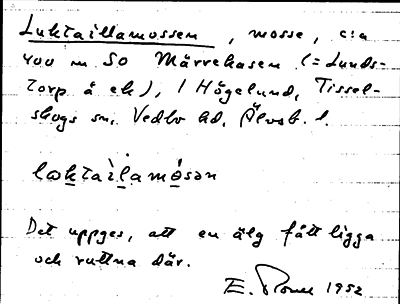 Luktaillamossen, mosse, c:a
400 m SO Märrekasen (= Lunds-
torp å ek), i Högelund, Tissel-
skogs sn. Vedbo hd. Älvsb. l.
lωktaìlamósən
Det uppges, att en älg fått ligga
och ruttna där.
E. 1952